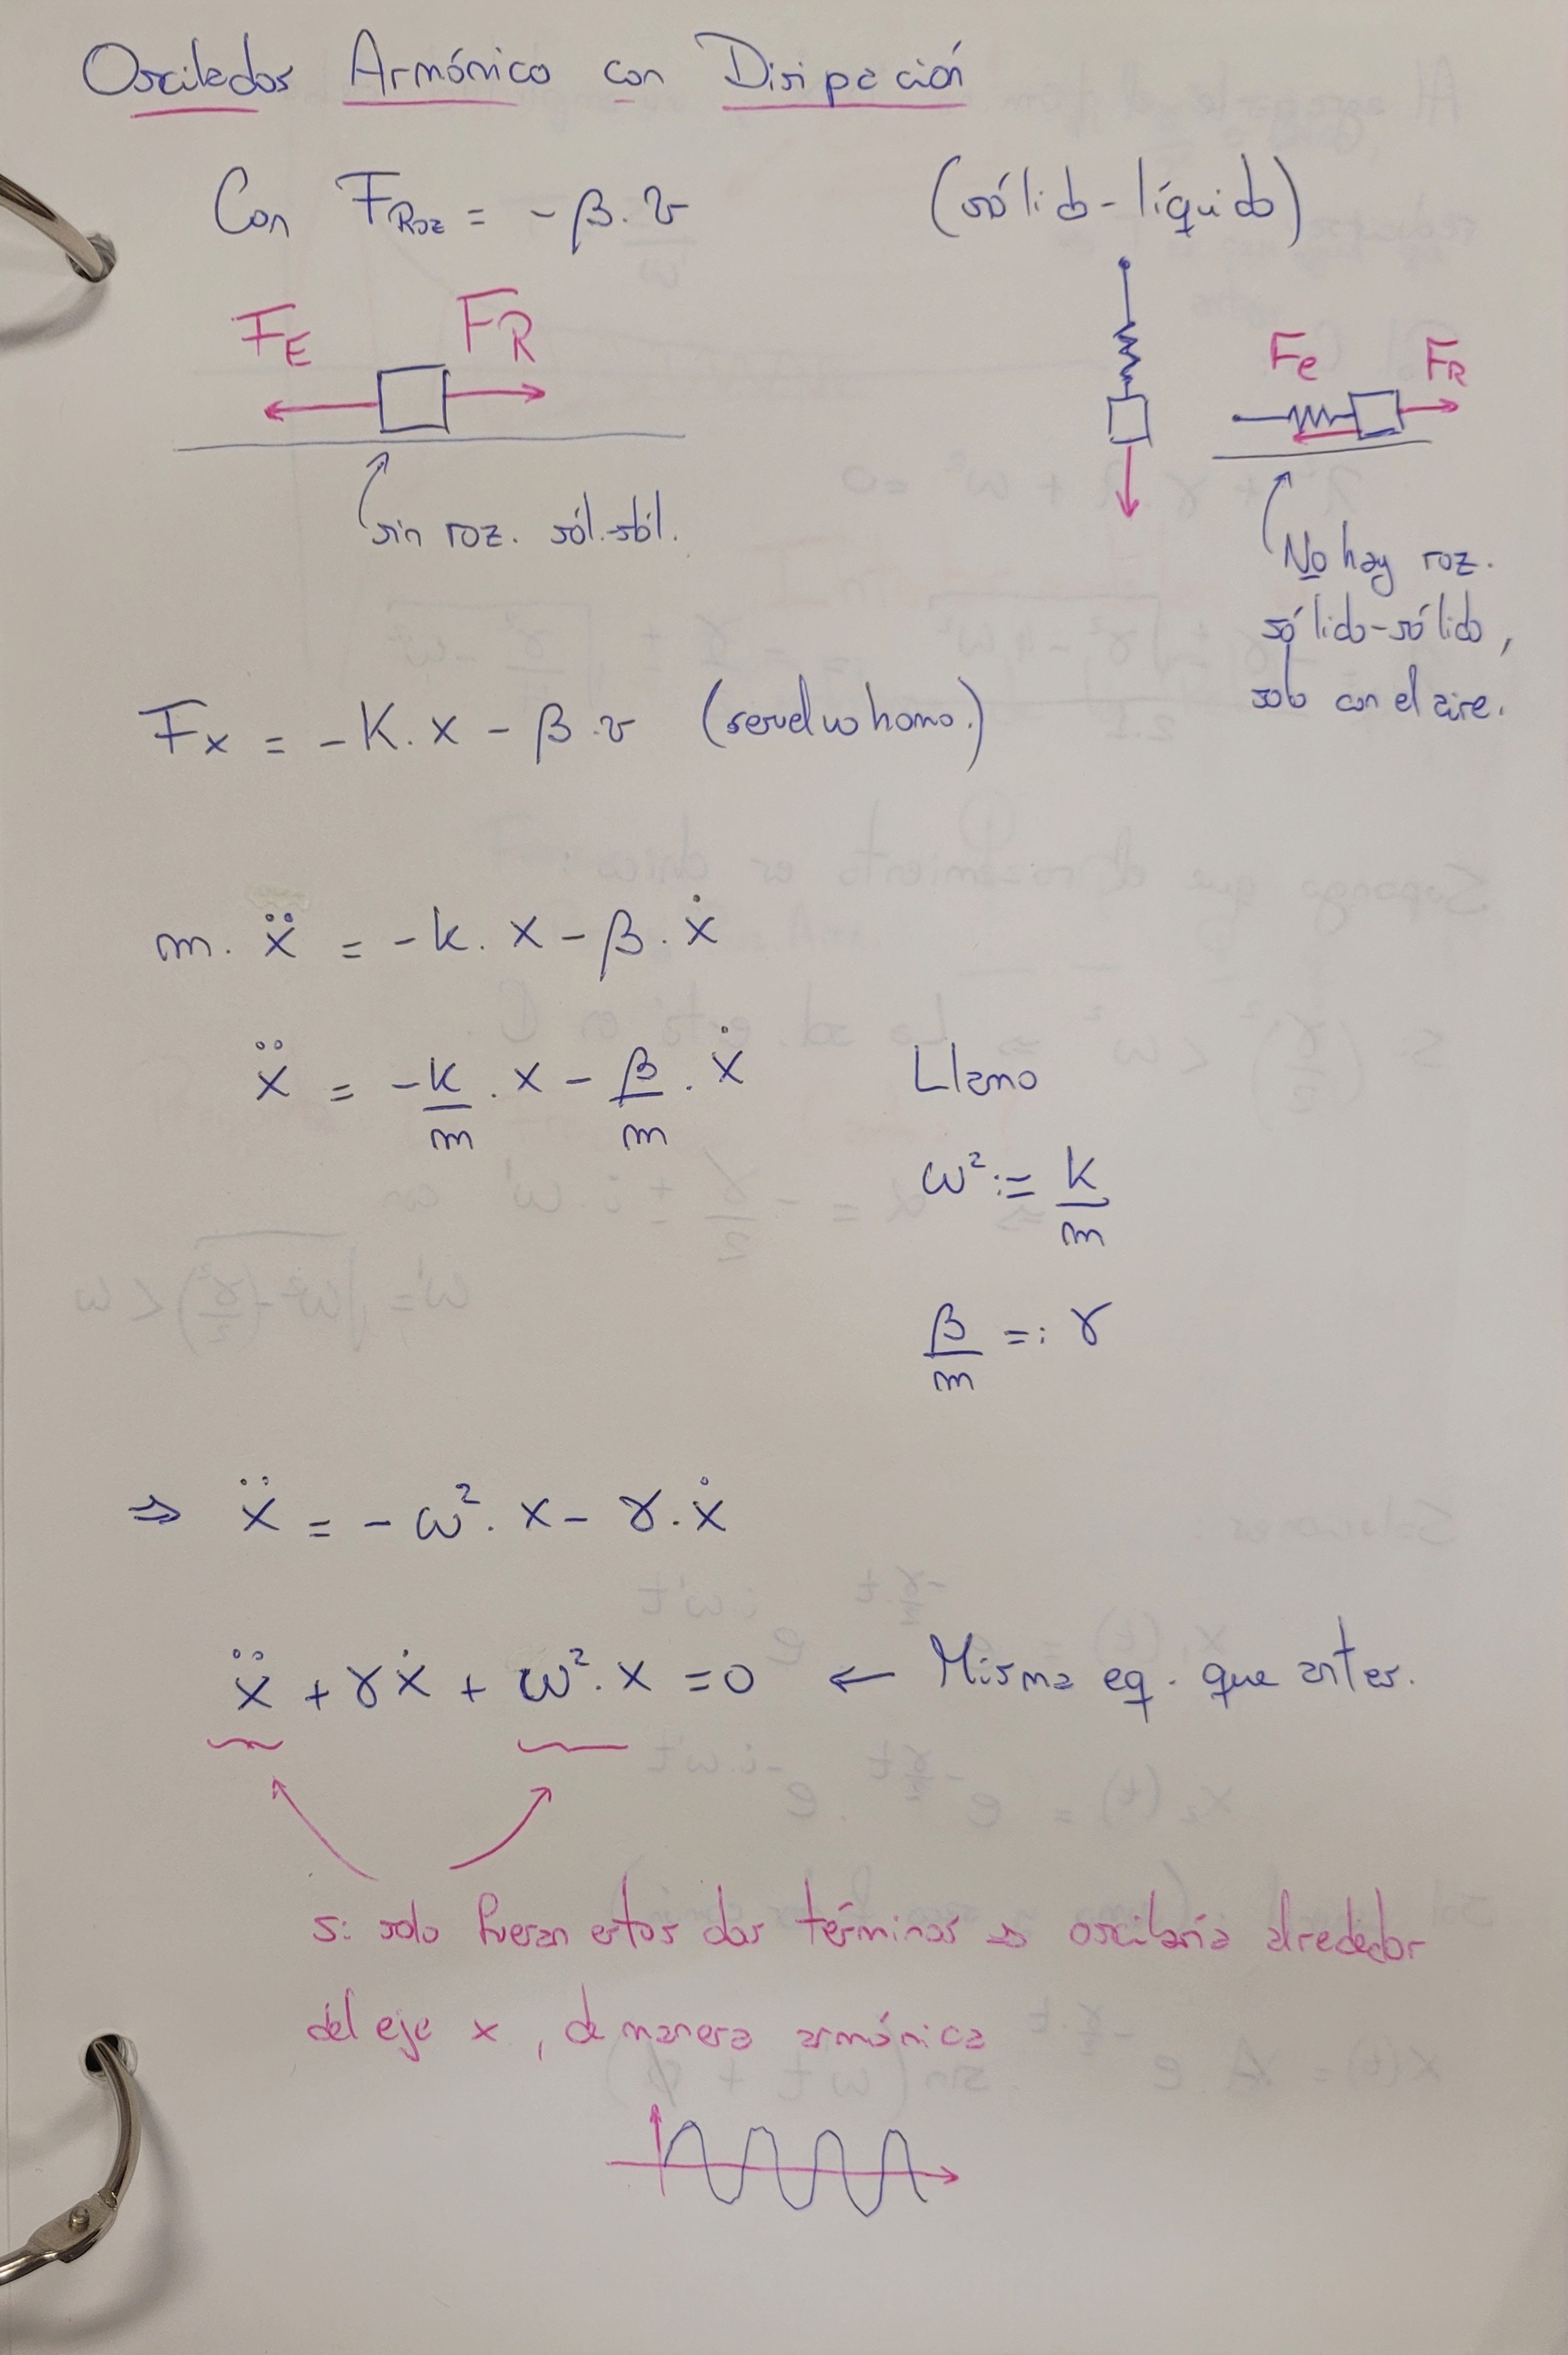 Oscilador Armónico con Disipación
Con F_Roz = - β . v (sólido-líquido)
F_E F_R
Fe F_R
sin roz. sól.-sól.
No hay roz.
sólido-sólido,
solo con el aire.
F_x = - K . x - β . v
m . ẍ = - k . x - β . ẋ
ẍ = - k/m . x - β/m . ẋ Llamo
ω² := k/m
β/m =: γ
⇒ ẍ = - ω² . x - γ . ẋ
ẍ + γẋ + ω² . x = 0 ← Misma eq. que antes.
Si solo fueran estos dos términos ⇒ oscilaría alrededor
del eje x, de manera armónica